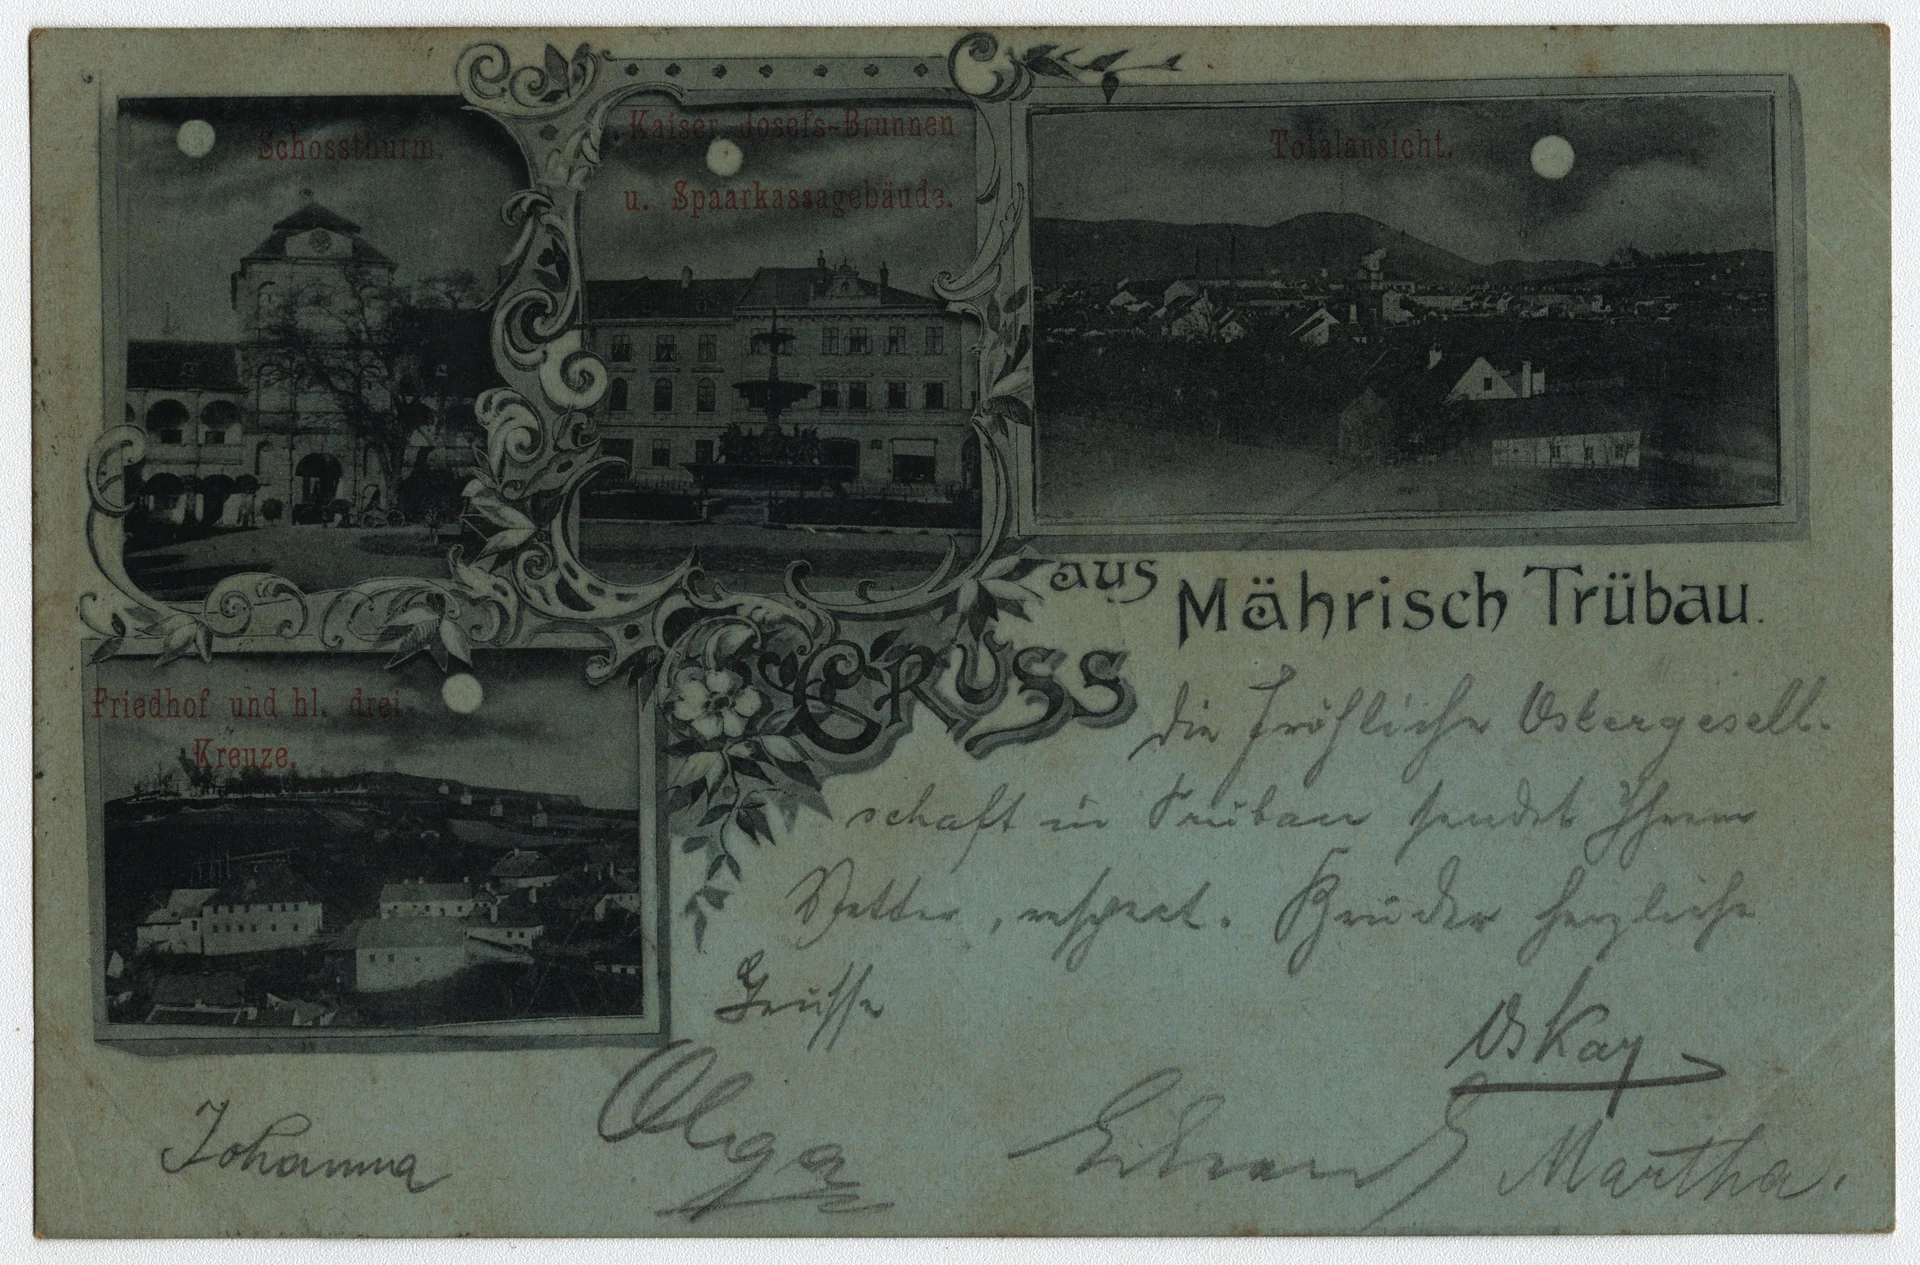 Schossthurm.
Kaiser Josefs-Brunnen
u. Spaarkassagebäude.
Totalansicht.
Friedhof und hl. drei
Kreuze.
Gruss
aus
Mährisch Trübau.
Die fröhliche Ostergesell-
schaft in Trübau sendet Ihrem
Vetter, respect. Bruder herzliche
Grüsse
Oskar
Johanna
Olga
Martha.